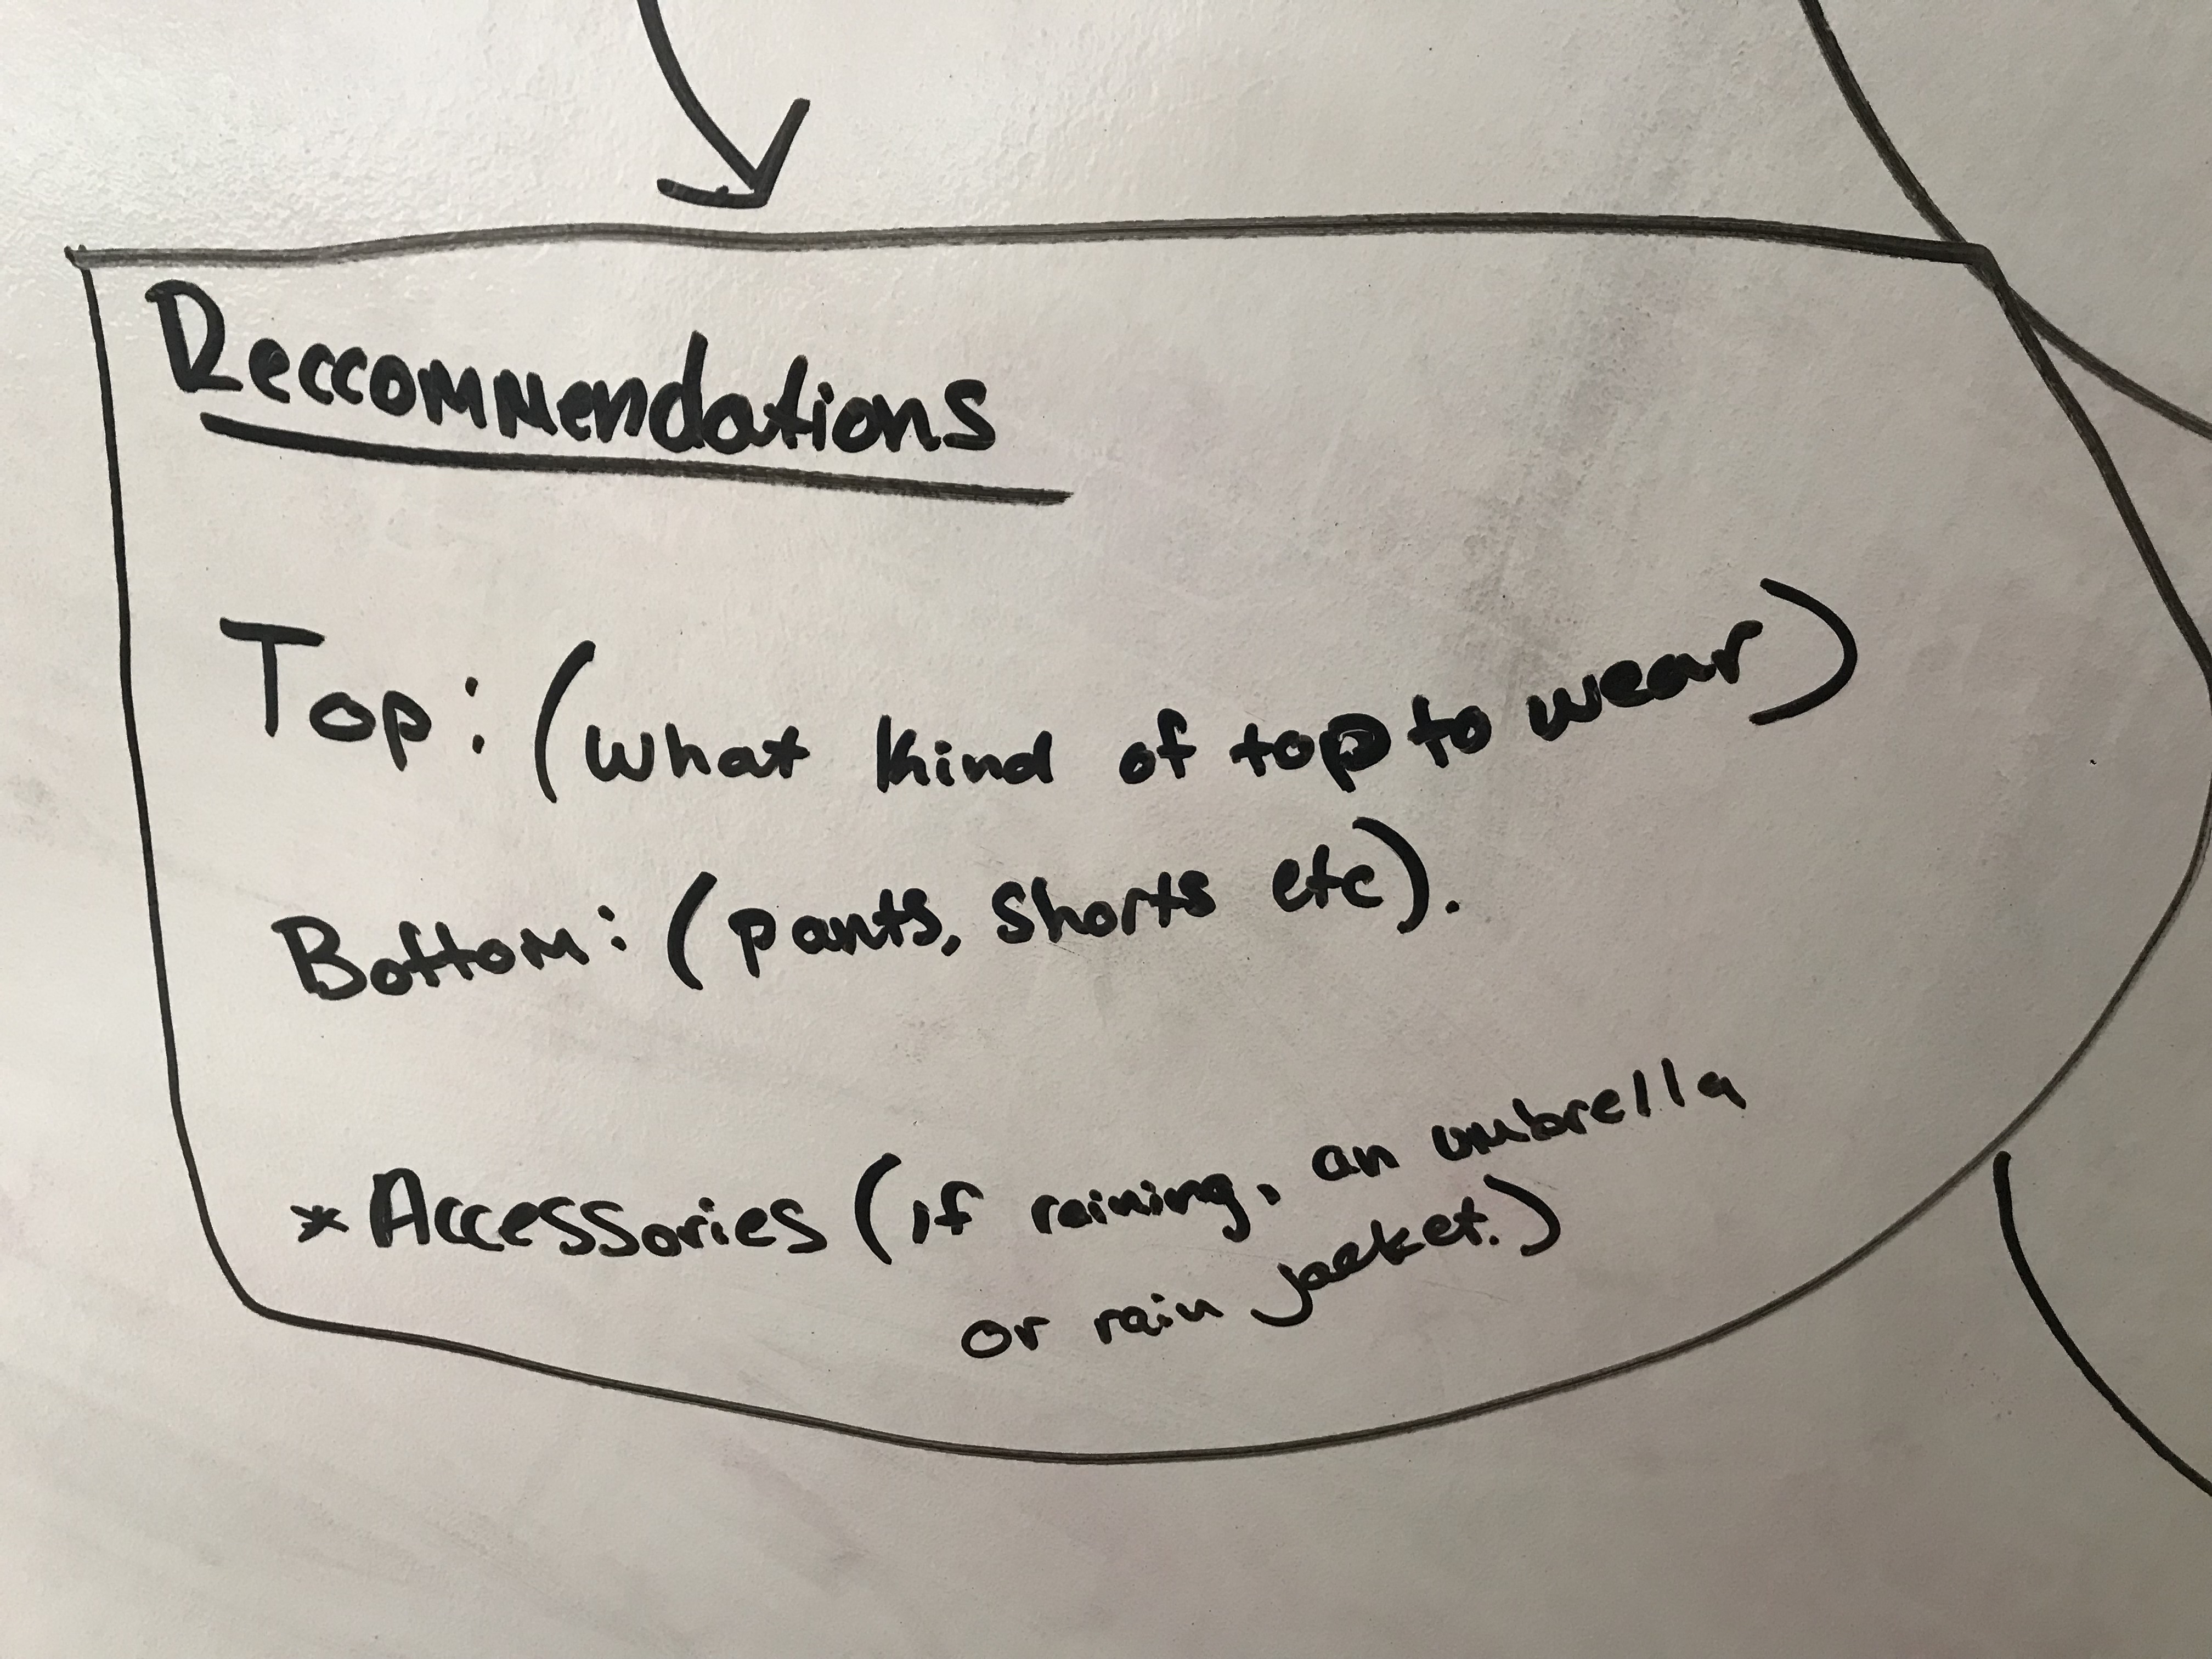 Reccommendations
Top: (what kind of top to wear)
Bottom: (pants, shorts etc).
*Accessories (if raining, an umbrella
or rain jacket.)